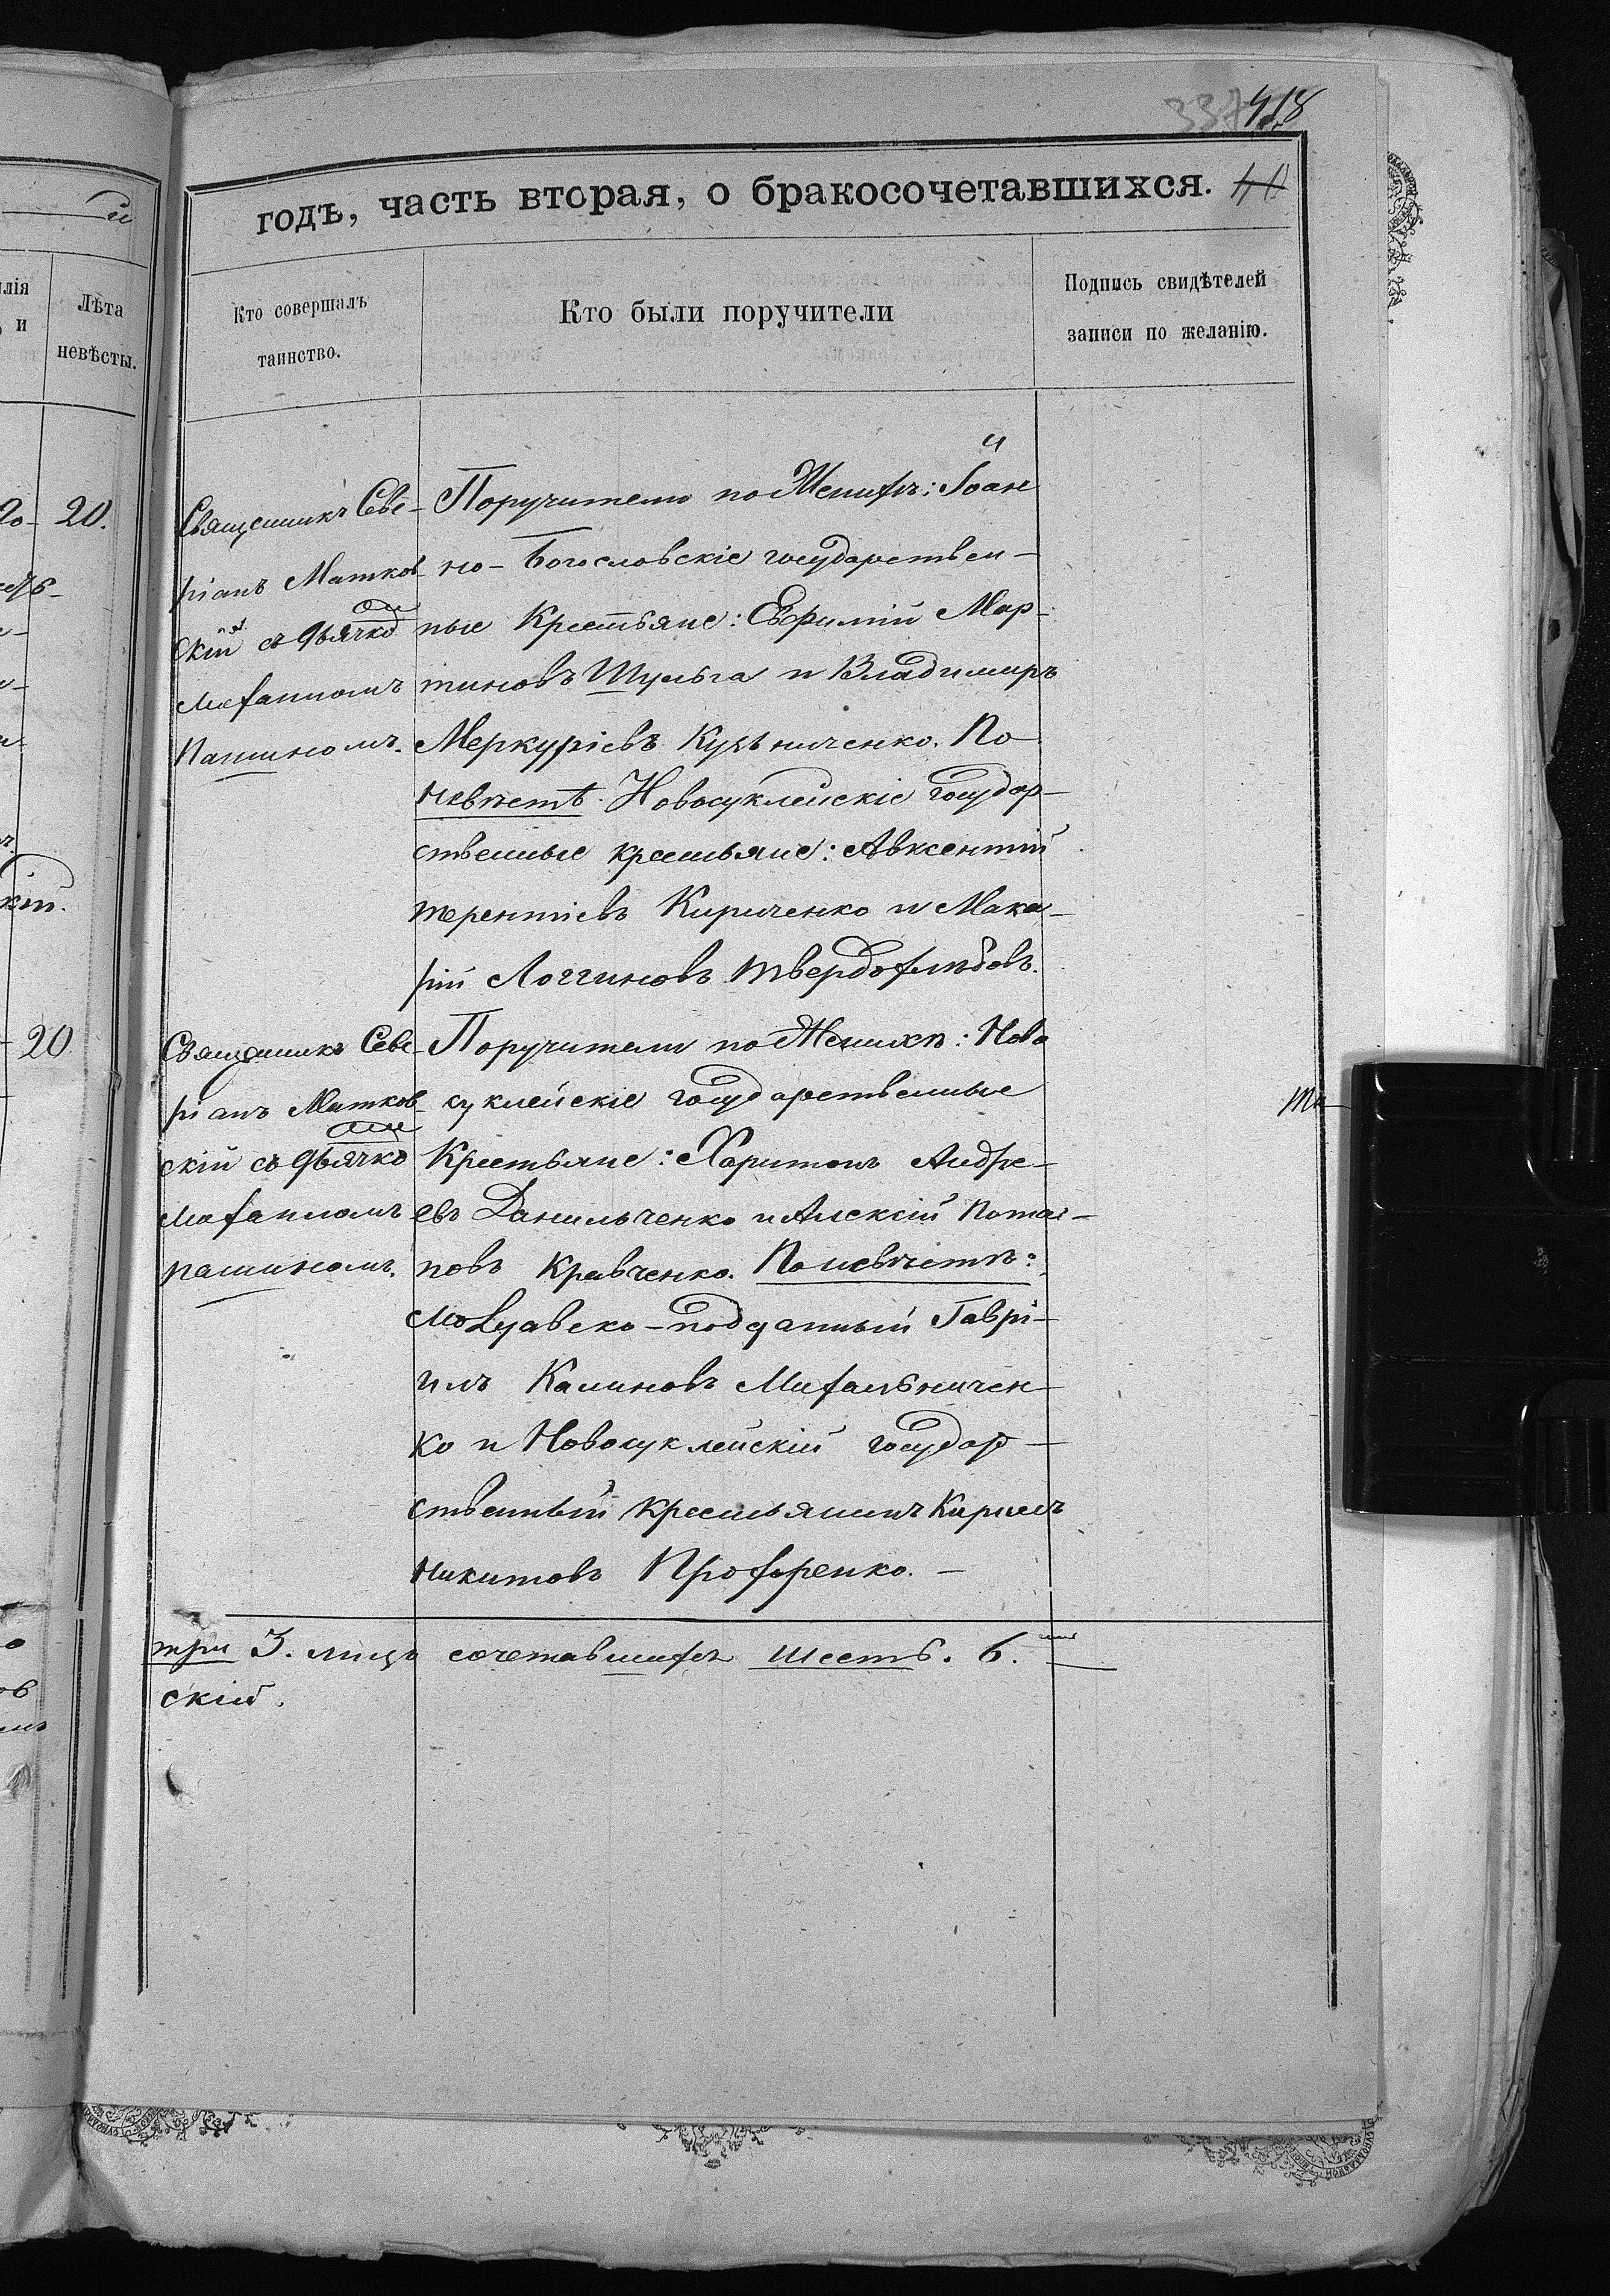 337
418
годъ, часть вторая, о бракосочетавшихся.
лія
и
Лѣта
невѣсты.
Кто совершалъ
таинство.
Кто были поручители
Подпись свидѣтелей
записи по желанію.
20.
Священникъ Севе-
ріанъ Матков-
скій съ дьячко
омъ
Мѳханномъ
Пашиномъ.
Поручители по Женихѣ: Іоан
но-Богословскіе государствен-
ные Крестьяне: Евфимій Мар-
тиновъ Шульга и Владимиръ
Меркуріевъ Кузьниченко. По
невѣстѣ. Новосуклейскіе государ-
ственные крестьяне: Авксентій
терентіевъ Кириченко и Мака-
рій Логгиновъ Твердохлѣбовъ.
20
Священникъ Севе-
ріанъ Матков-
скій съ дьячко
омъ
пашиномъ.
Поручители по Женихѣ: Ново
суклейскіе государственные
Крестьяне: Харитонъ Андре-
евъ Данильченко и Алексій Пота-
повъ Кравченко. По невѣстѣ:
Молдавско-подданный Гаврі-
илъ Калиновъ Михальничен-
ко и Новосуклейскій государ-
ственный крестьянинъ Кирилъ
Никитовъ Прохоренко.
три 3. лицъ сочетавшихъ шесть. 6.
скій.